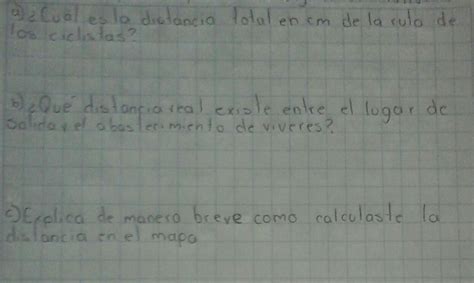 a)¿Cuál es la distancia total en cm de la ruta de
los ciclistas?
b)¿Qué distancia real existe entre el lugar de
salida y el abastecimiento de viveres?
c)Explica de manera breve como calculaste la
distancia en el mapa